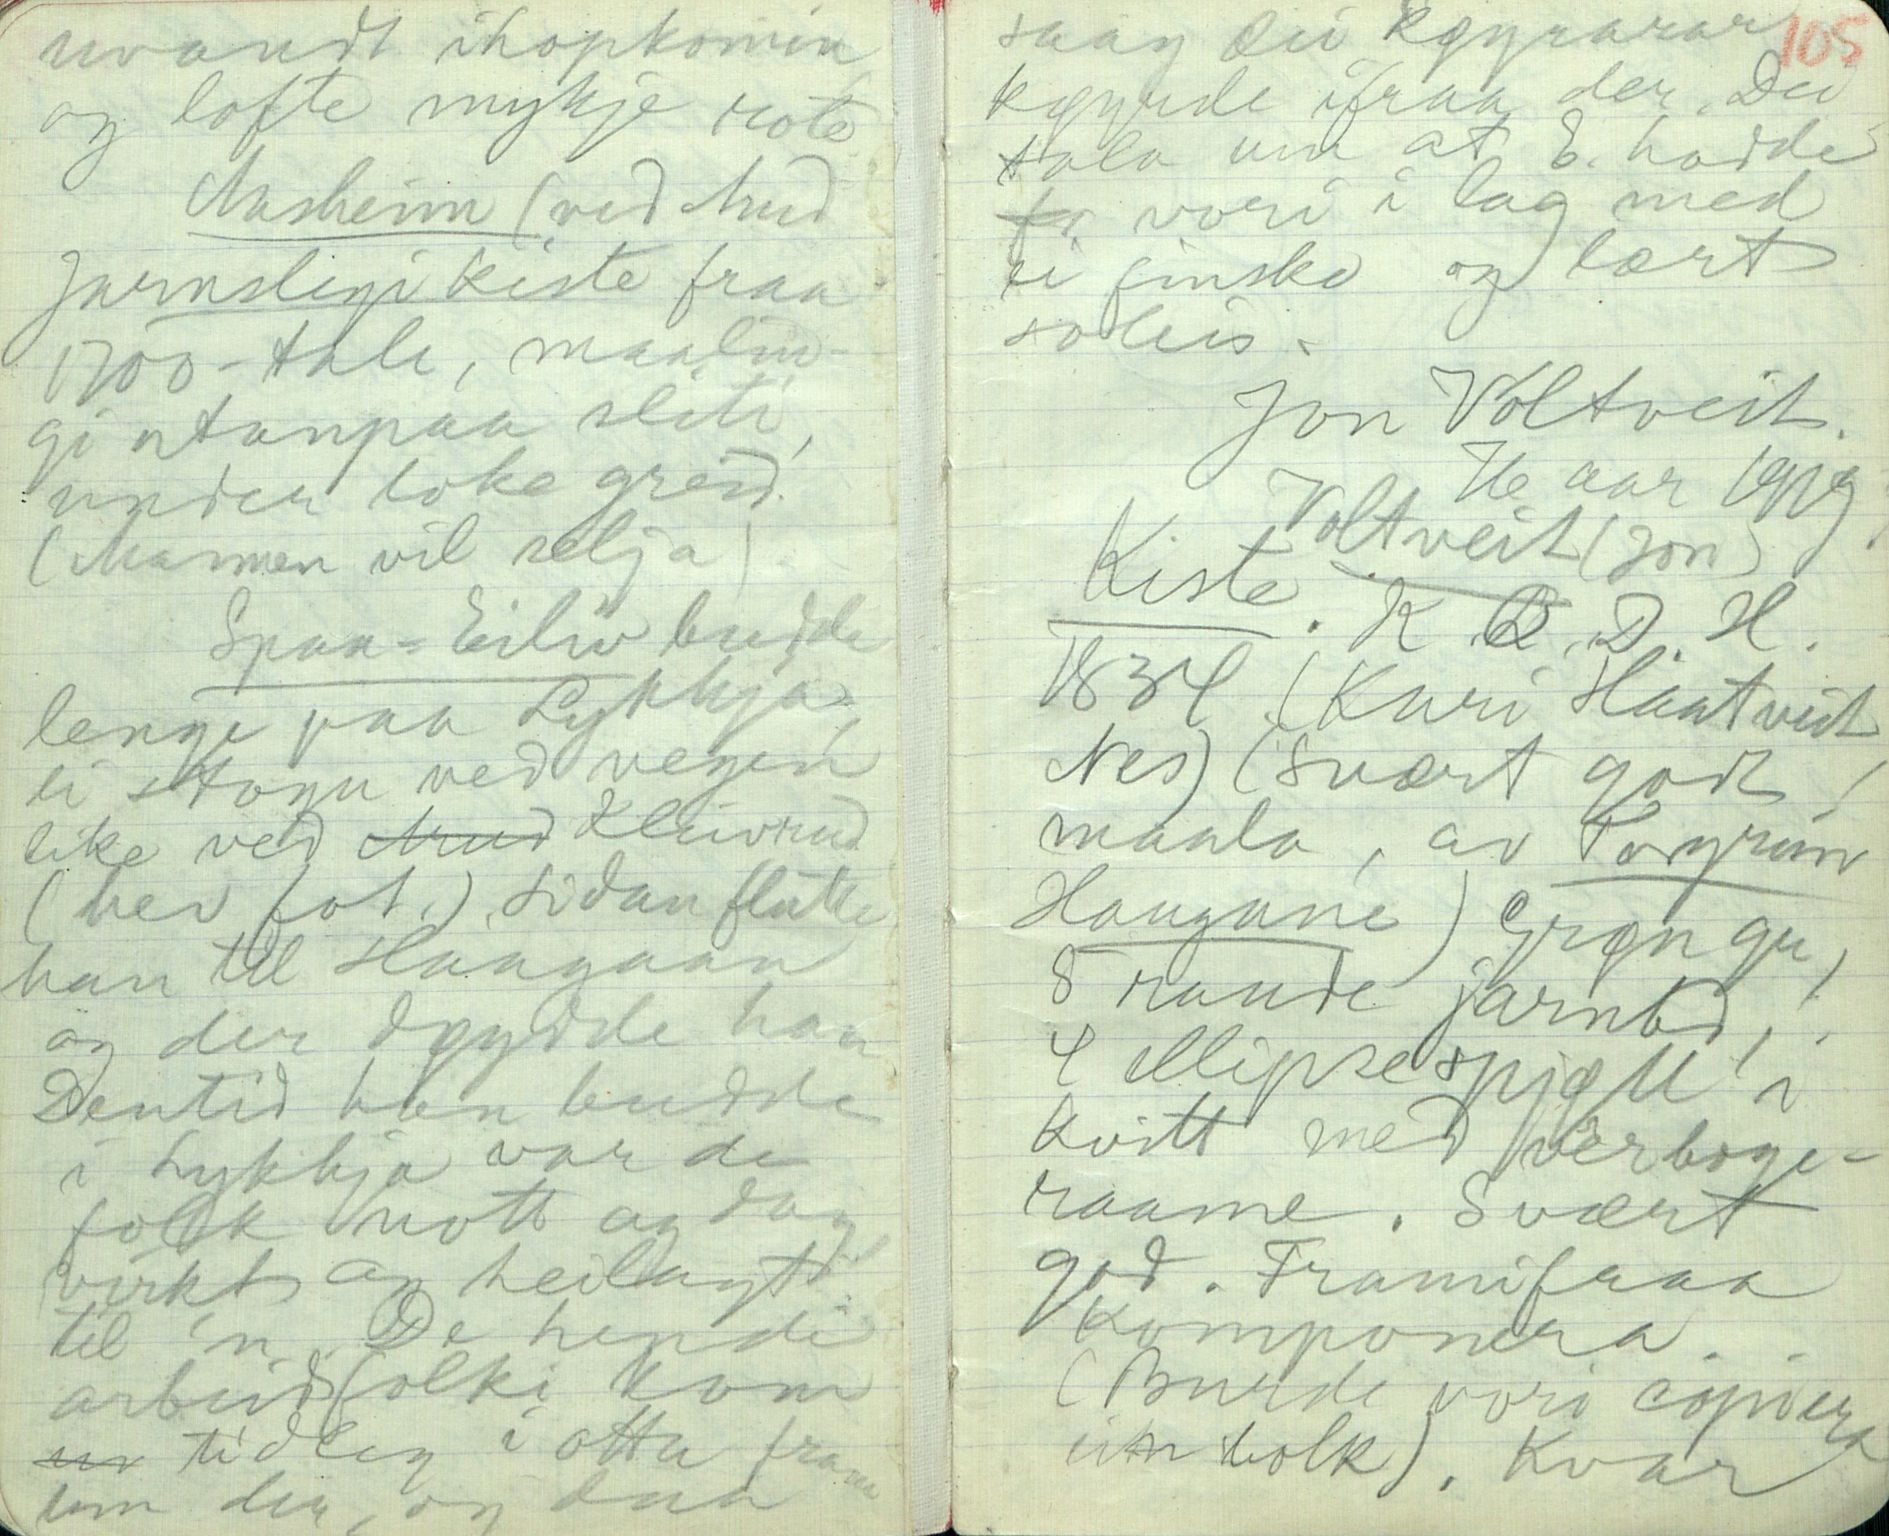 uvandt ihopkomin
og lofte mykje rote
Aasheim (ved Aud
Jarnslegi kiste fraa
1700-tale, maalin-
gi utanpaa sliti,
under loke greid.
(Mannen vil selja)
Spaa-Eiliv budde
lengi paa Lykkja,
ei stogu ved vegen
like ved Aud Kleivrud
(hev fot.) Sidan flutte
han til Haagaan
og der døydde han
Dentid han budde
i Lykkja var de
folk nott og dag,
virkt og heilagt
til 'n. De hende
arbeidsfolki kom
tidleg i otta fram
um der, og daa
105
saag dei køyrarar
køyrde ifraa der. Dei
tala um at E. hadde
vori i lag med
ei finske og lært
soleis.
Jon Voltveit.
76 aar 1919
Voltveit (Jon)
Kiste. K. B. D. H.
1834 (Kari Haatveit
Nes) (Svært godt
maala, av Torgrim
Haugane) Grøn gr.,
8 raude jarnbd,
4 ellipsespjøll i
kvitt med verboge-
raame. Svært
god. Framifraa
komponera.
(Burde vori copiera
i bolk). Kvar